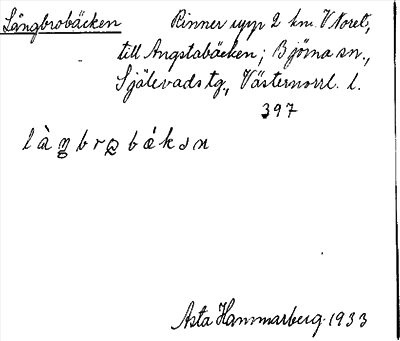 Långbrobäcken Rinner upp 2 km. V Noret,
till Angstabäcken; Björna sn.,
Själevads tg., Västernorrl. l.
397
Asta Hammarberg. 1933